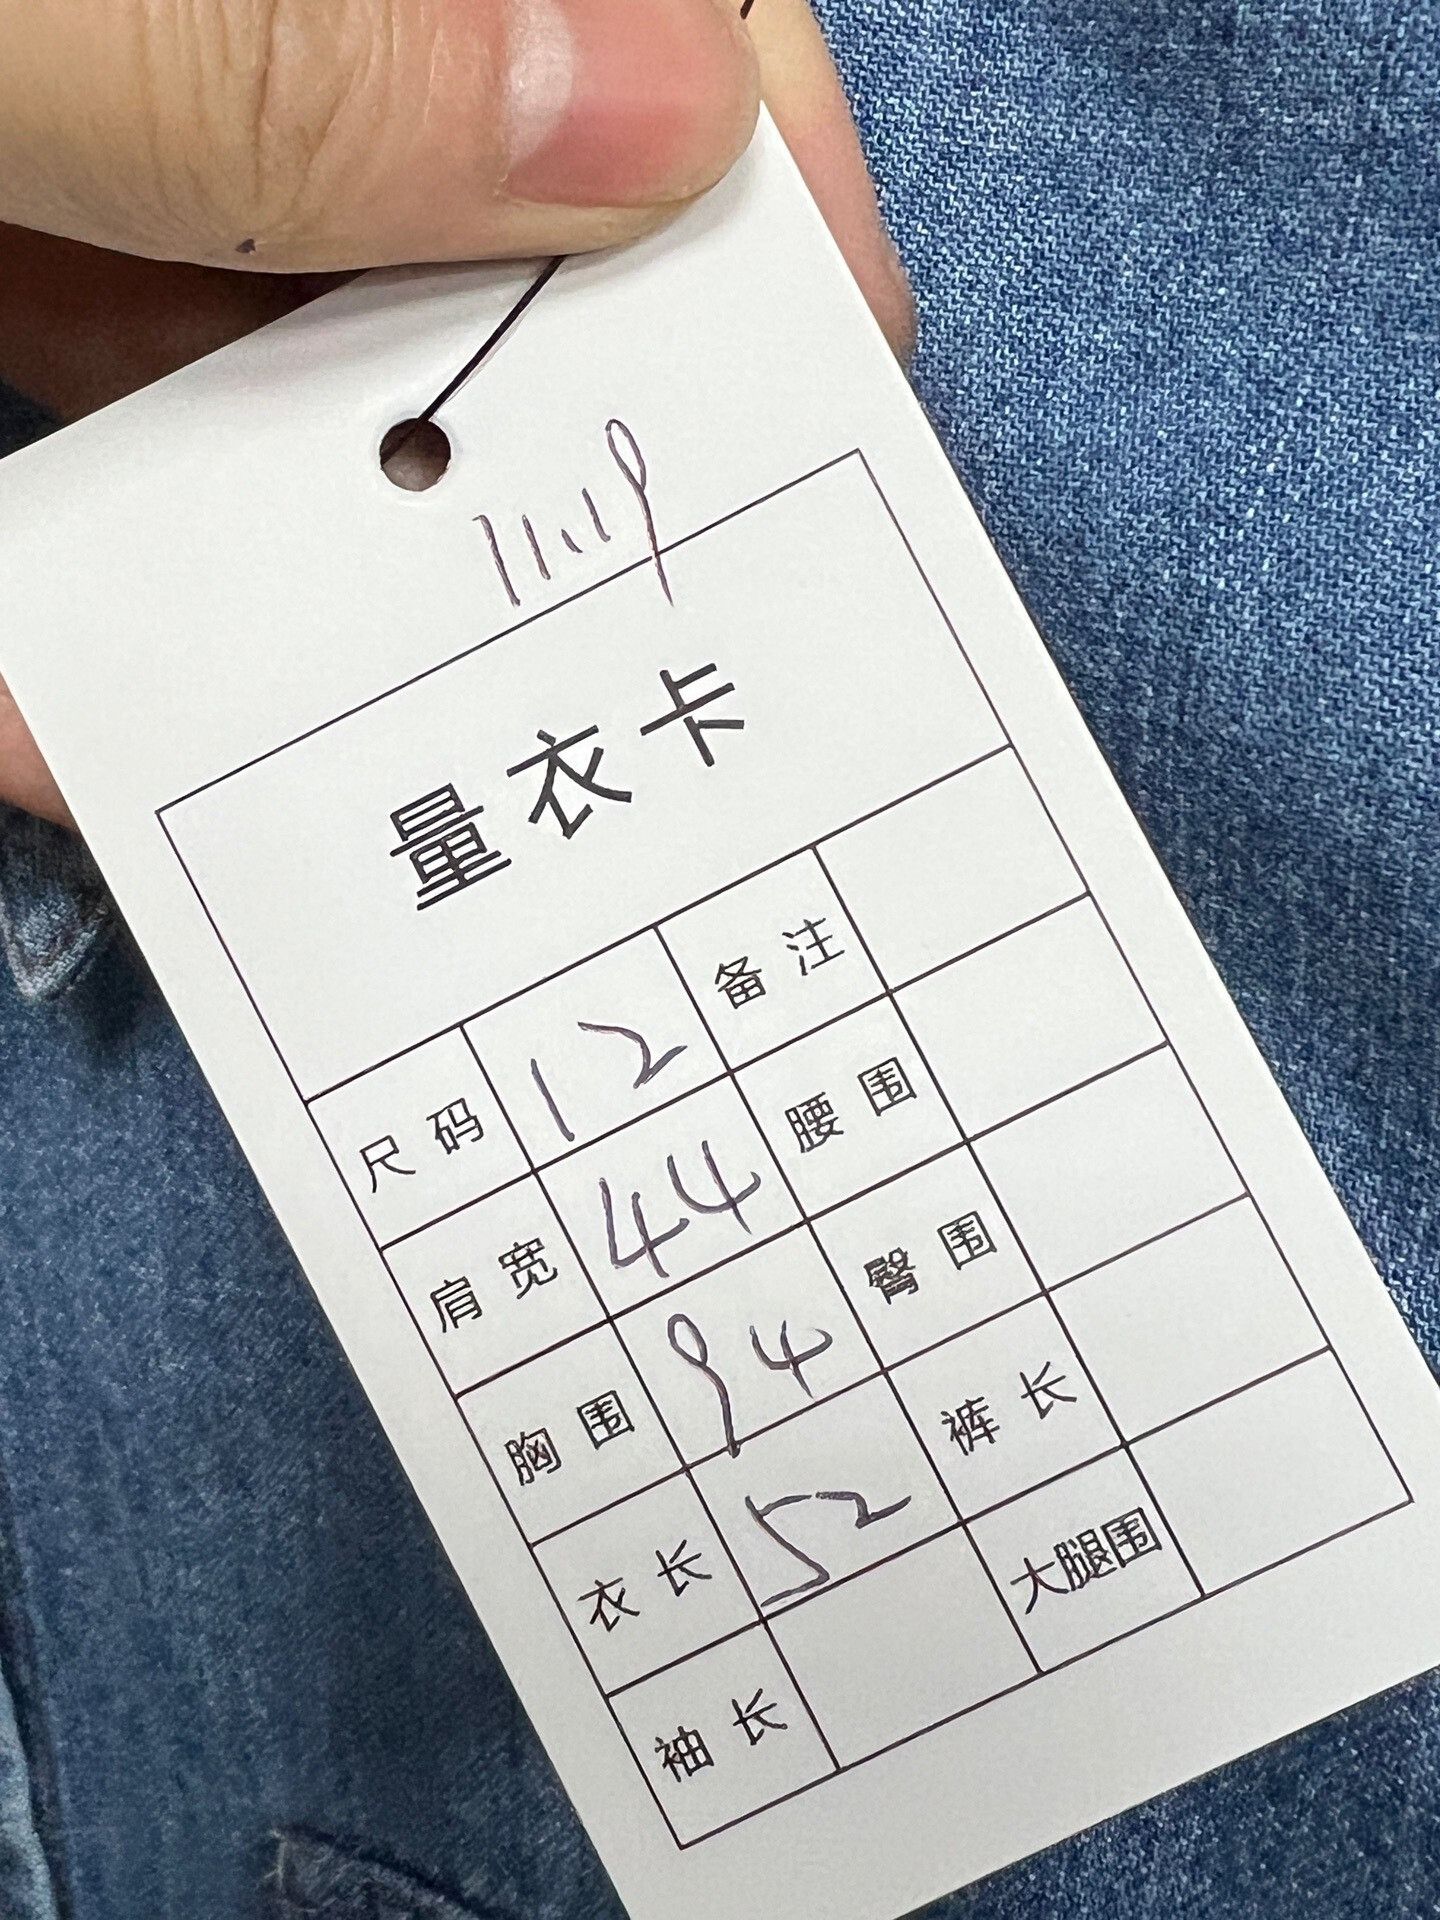 11.19
量衣卡
尺码 12 备注
肩宽 44 腰围
胸围 94 臀围
衣长 52 裤长
袖长 大腿围